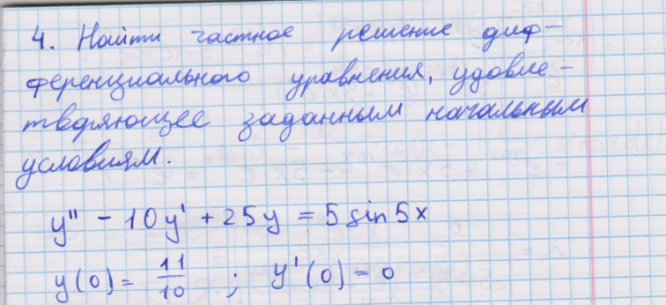 4. Найти частное решение диф-
ференциального уравнения, удовле-
творяющее заданным начальным
условиям.
y'' - 10y' + 25y = 5 sin 5x
y(0) = 11/10 ; y'(0) = 0